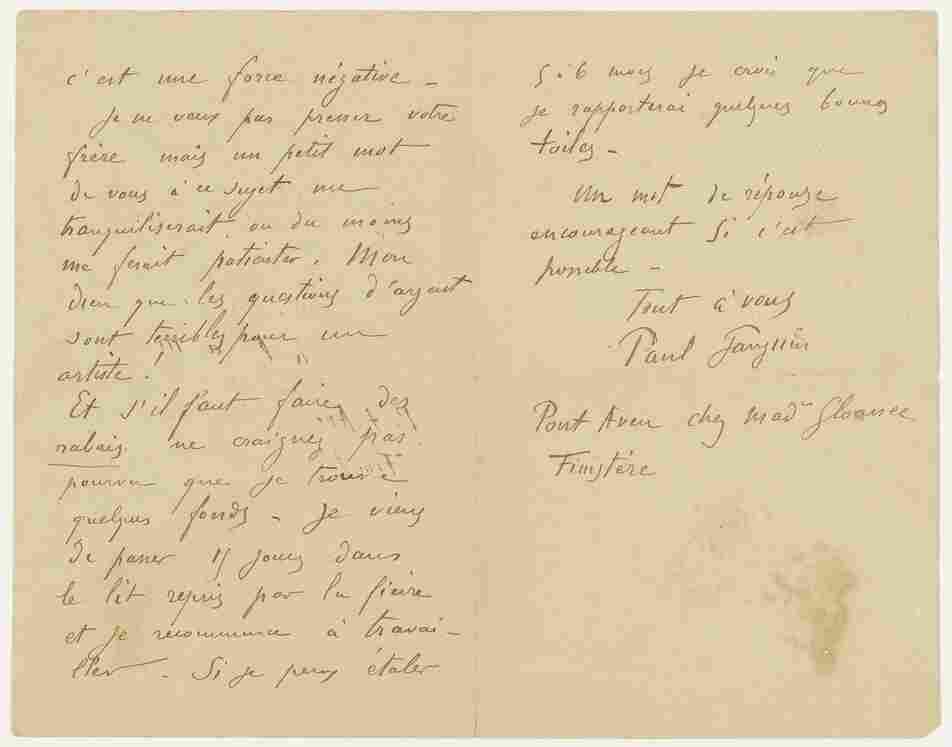 c'est une force négative –
Je ne veux pas presser votre
frère mais un petit mot
de vous à ce sujet me
tranquiliserait, ou du moins
me ferait patienter. Mon
dieu que les questions d'argent
sont terribles pour un
artiste !
Et s'il faut faire des
rabais ne craignez pas
pourvu que je trouve
quelques fonds – Je viens
de passer 15 jours dans
le lit repris par la fièvre
et je recommence à travai–
ller – Si je peux étaler
5 à 6 mois je crois que
je rapporterai quelques bonnes
toiles –
Un mot de réponse
encourageant si c'est
possible –
Tout à vous
Paul Gauguin
Pont Aven chez Mad^me Gloanec
Finistère